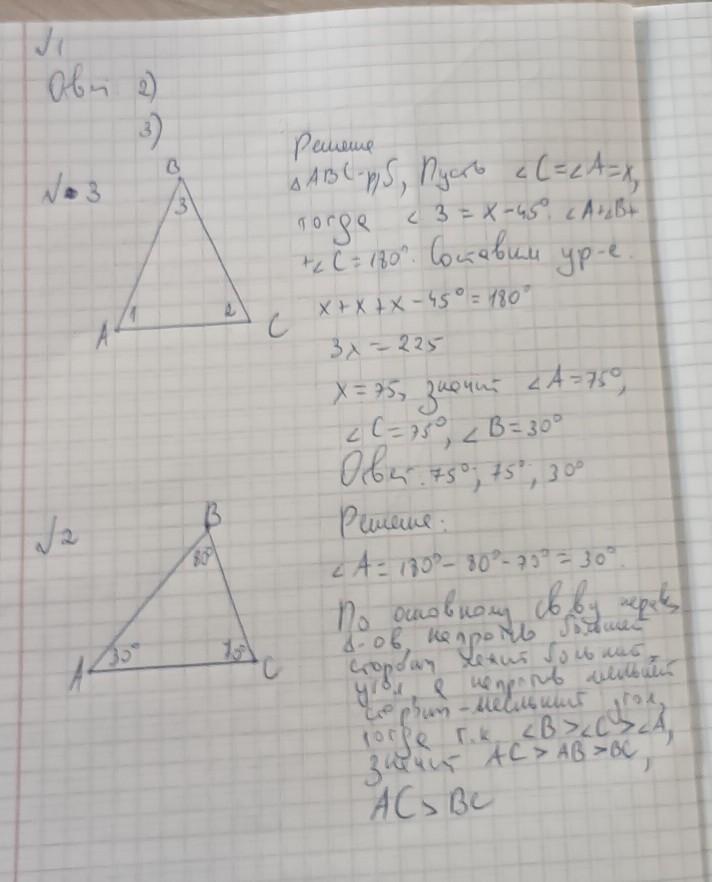 №1
Ответ 2)
3)
№3
B
3
1
2
A
C
Решение
△ABC - р/б, Пусть ∠C=∠A=x,
тогда ∠3 = x-45°. ∠A+∠B+
+∠C=180°. Составим ур-е.
x+x+x-45°=180°
3x=225
x=75, значит ∠A=75°,
∠C=75°, ∠B=30°
Ответ. 75°; 75°; 30°
№2
B
80°
30°
A
C
Решение:
∠A=180°-80°-70°=30°.
По основному св-ву нерав
△-ов, напротив большей
стороны лежит больший
угол, а напротив меньшей
стороны - меньший угол,
тогда т.к ∠B>∠C>∠A,
значит AC>AB>BC,
AC>BC